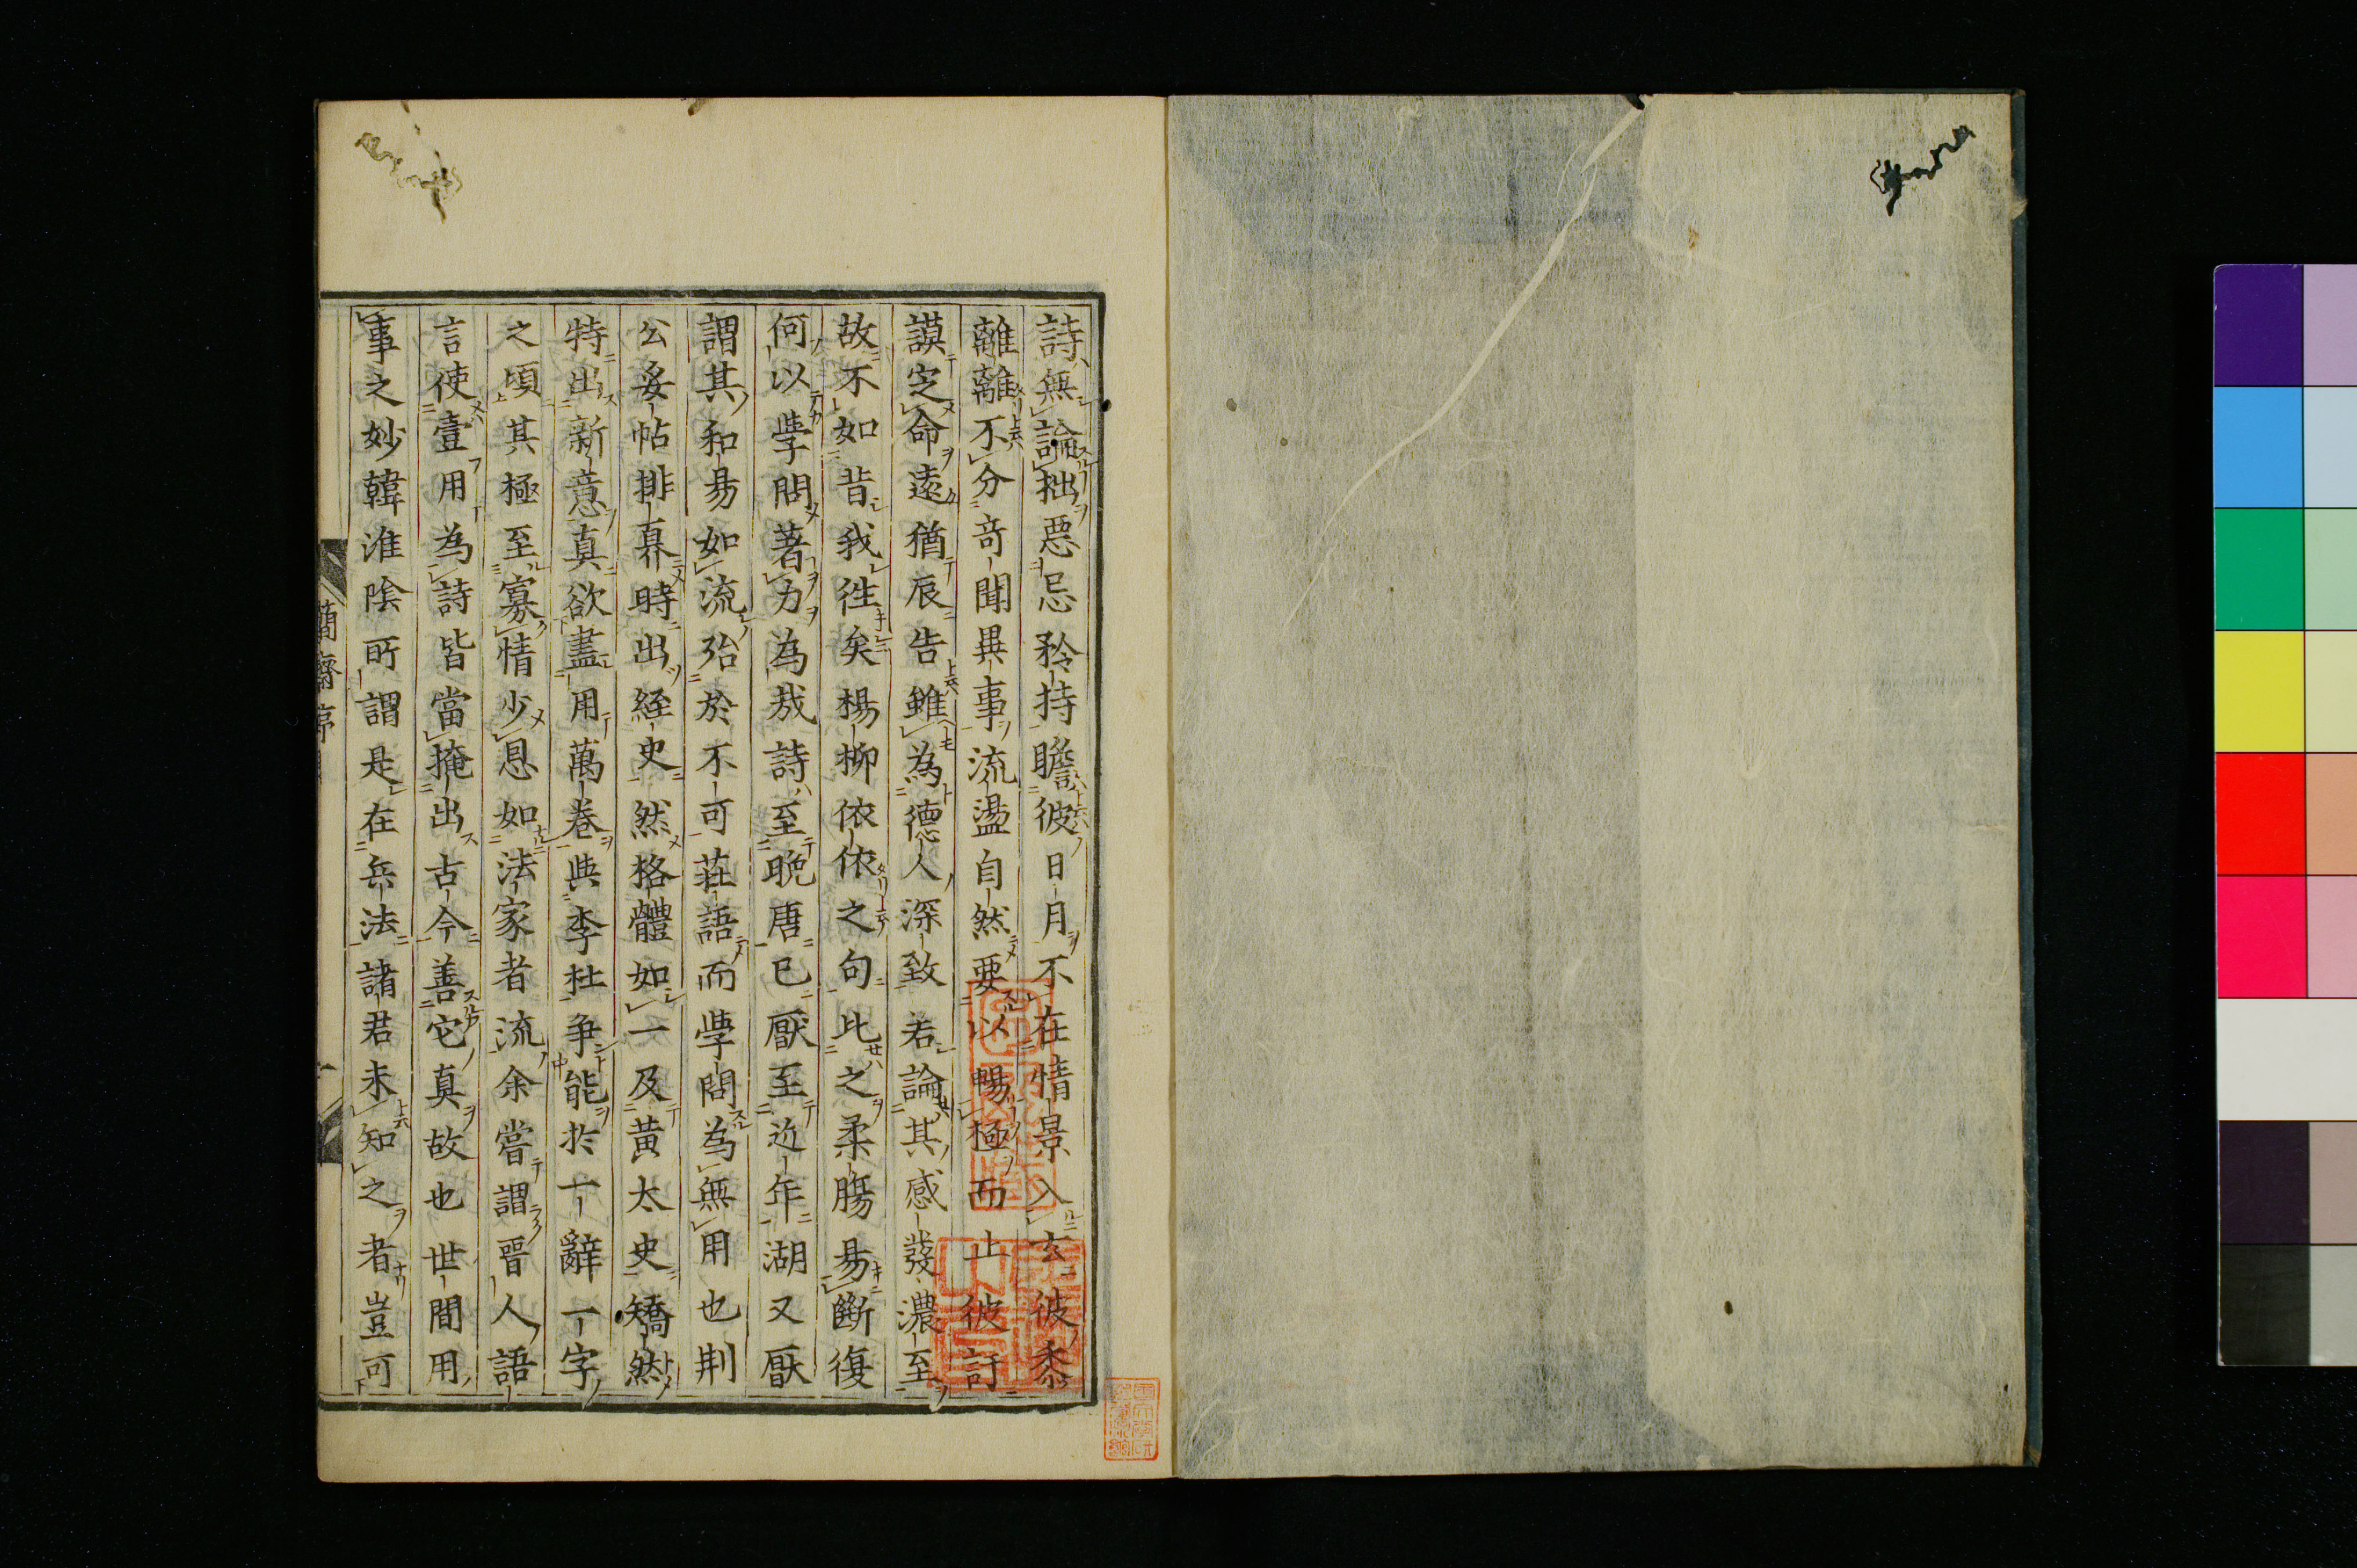 詩無論拙惡忌矜持瞻彼日月不在情景入玄彼黍
離離不分奇聞異事流盪自然要以暢極而止彼訏
謨㝎命遠猶辰告雖為德人深致若論其感發濃至
故不如昔我徃矣楊柳依依之句比之柔膓易斷復
何以學問著力為哉詩至晚唐已厭至近年湖又厭
謂其和易如流殆於不可莊語而學問為無用也荆
公妥帖排奡時出經史然格體如一及黃太史矯然
特出新意真欲盡用萬卷與李杜爭能於一辭一字
之頃其極至寡情少恩如法家者流余嘗謂晉人語
言使壹用為詩皆當掩出古今善它真故也世間用
事之妙韓淮陰所謂是在兵法諸君未知之者豈可
簡齋序